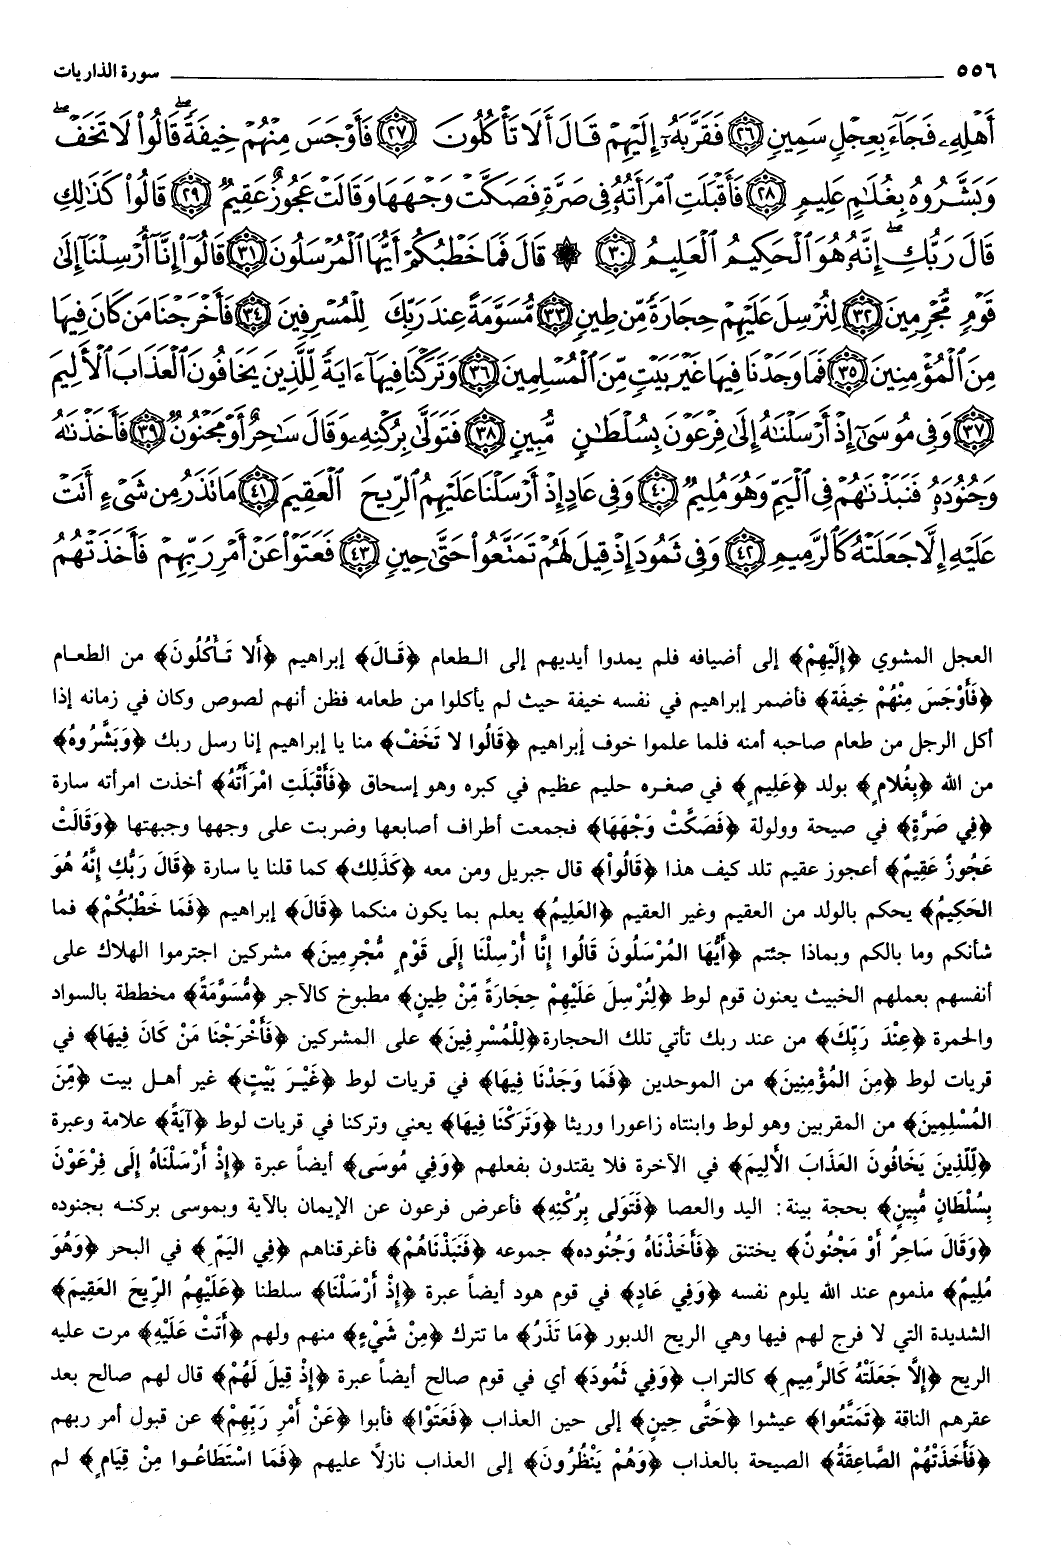 ٥٥٦ سورة الذاريات
أَهْلِهِۦ فَجَآءَ بِعِجْلٍ سَمِينٍ ﴿٢٦﴾ فَقَرَّبَهُۥٓ إِلَيْهِمْ قَالَ أَلَا تَأْكُلُونَ ﴿٢٧﴾ فَأَوْجَسَ مِنْهُمْ خِيفَةً ۖ قَالُوا۟ لَا تَخَفْ ۖ
وَبَشَّرُوهُ بِغُلَـٰمٍ عَلِيمٍ ﴿٢٨﴾ فَأَقْبَلَتِ ٱمْرَأَتُهُۥ فِى صَرَّةٍ فَصَكَّتْ وَجْهَهَا وَقَالَتْ عَجُوزٌ عَقِيمٌ ﴿٢٩﴾ قَالُوا۟ كَذَٰلِكِ
قَالَ رَبُّكِ ۖ إِنَّهُۥ هُوَ ٱلْحَكِيمُ ٱلْعَلِيمُ ﴿٣٠﴾ ۞ قَالَ فَمَا خَطْبُكُمْ أَيُّهَا ٱلْمُرْسَلُونَ ﴿٣١﴾ قَالُوٓا۟ إِنَّآ أُرْسِلْنَآ إِلَىٰ
قَوْمٍ مُّجْرِمِينَ ﴿٣٢﴾ لِنُرْسِلَ عَلَيْهِمْ حِجَارَةً مِّن طِينٍ ﴿٣٣﴾ مُّسَوَّمَةً عِندَ رَبِّكَ لِلْمُسْرِفِينَ ﴿٣٤﴾ فَأَخْرَجْنَا مَن كَانَ فِيهَا
مِنَ ٱلْمُؤْمِنِينَ ﴿٣٥﴾ فَمَا وَجَدْنَا فِيهَا غَيْرَ بَيْتٍ مِّنَ ٱلْمُسْلِمِينَ ﴿٣٦﴾ وَتَرَكْنَا فِيهَآ ءَايَةً لِّلَّذِينَ يَخَافُونَ ٱلْعَذَابَ ٱلْأَلِيمَ
﴿٣٧﴾ وَفِى مُوسَىٰٓ إِذْ أَرْسَلْنَـٰهُ إِلَىٰ فِرْعَوْنَ بِسُلْطَـٰنٍ مُّبِينٍ ﴿٣٨﴾ فَتَوَلَّىٰ بِرُكْنِهِۦ وَقَالَ سَـٰحِرٌ أَوْ مَجْنُونٌ ﴿٣٩﴾ فَأَخَذْنَـٰهُ
وَجُنُودَهُۥ فَنَبَذْنَـٰهُمْ فِى ٱلْيَمِّ وَهُوَ مُلِيمٌ ﴿٤٠﴾ وَفِى عَادٍ إِذْ أَرْسَلْنَا عَلَيْهِمُ ٱلرِّيحَ ٱلْعَقِيمَ ﴿٤١﴾ مَا تَذَرُ مِن شَىْءٍ أَتَتْ
عَلَيْهِ إِلَّا جَعَلَتْهُ كَٱلرَّمِيمِ ﴿٤٢﴾ وَفِى ثَمُودَ إِذْ قِيلَ لَهُمْ تَمَتَّعُوا۟ حَتَّىٰ حِينٍ ﴿٤٣﴾ فَعَتَوْا۟ عَنْ أَمْرِ رَبِّهِمْ فَأَخَذَتْهُمُ
العجل المشوي ﴿إِلَيْهِمْ﴾ إلى أضيافه فلم يمدوا أيديهم إلى الطعام ﴿قَالَ﴾ إبراهيم ﴿أَلا تَأْكُلُونَ﴾ من الطعام
﴿فَأَوْجَسَ مِنْهُمْ خِيفَة﴾ فأضمر إبراهيم في نفسه خيفة حيث لم يأكلوا من طعامه فظن أنهم لصوص وكان في زمانه إذا
أكل الرجل من طعام صاحبه أمنه فلما علموا خوف إبراهيم ﴿قَالُوا لا تَخَفْ﴾ منا يا إبراهيم إنا رسل ربك ﴿وَبَشَّرُوهُ﴾
من الله ﴿بِغُلامٍ﴾ بولد ﴿عَلِيمٍ﴾ في صغره حليم عظيم في كبره وهو إسحاق ﴿فَأَقْبَلَتِ امْرَأَتُهُ﴾ أخذت امرأته سارة
﴿فِي صَرَّةٍ﴾ في صيحة وولولة ﴿فَصَكَّتْ وَجْهَهَا﴾ فجمعت أطراف أصابعها وضربت على وجهها وجبهتها ﴿وَقَالَتْ
عَجُوزٌ عَقِيمٌ﴾ أعجوز عقيم تلد كيف هذا ﴿قَالُواْ﴾ قال جبريل ومن معه ﴿كَذَلِك﴾ كما قلنا يا سارة ﴿قَالَ رَبُّكِ إِنَّهُ هُوَ
الحَكِيمُ﴾ يحكم بالولد من العقيم وغير العقيم ﴿العَلِيمُ﴾ يعلم بما يكون منكما ﴿قَالَ﴾ إبراهيم ﴿فَمَا خَطْبُكُمْ﴾ فما
شأنكم وما بالكم وبماذا جئتم ﴿أَيُّهَا المُرْسَلُونَ قَالُوا إِنَّا أُرْسِلْنَا إِلَى قَوْمٍ مُّجْرِمِينَ﴾ مشركين اجترموا الهلاك على
أنفسهم بعملهم الخبيث يعنون قوم لوط ﴿لِنُرْسِلَ عَلَيْهِمْ حِجَارَةً مِّنْ طِينٍ﴾ مطبوخ كالآجر ﴿مُّسَوَّمَةً﴾ مخططة بالسواد
والحمرة ﴿عِنْدَ رَبِّكَ﴾ من عند ربك تأتي تلك الحجارة ﴿لِلْمُسْرِفِينَ﴾ على المشركين ﴿فَأَخْرَجْنَا مَنْ كَانَ فِيهَا﴾ في
قريات لوط ﴿مِنَ المُؤْمِنِينَ﴾ من الموحدين ﴿فَمَا وَجَدْنَا فِيهَا﴾ في قريات لوط ﴿غَيْرَ بَيْتٍ﴾ غير أهل بيت ﴿مِّنَ
المُسْلِمِينَ﴾ من المقربين وهو لوط وابنتاه زاعورا وريثا ﴿وَتَرَكْنَا فِيهَا﴾ يعني وتركنا في قريات لوط ﴿آيَةً﴾ علامة وعبرة
﴿لِّلَّذِينَ يَخَافُونَ العَذَابَ الأَلِيمَ﴾ في الآخرة فلا يقتدون بفعلهم ﴿وَفِي مُوسَى﴾ أيضاً عبرة ﴿إِذْ أَرْسَلْنَاهُ إِلَى فِرْعَوْنَ
بِسُلْطَانٍ مُّبِينٍ﴾ بحجة بينة: اليد والعصا ﴿فَتَوَلى بِرُكْنِهِ﴾ فأعرض فرعون عن الإيمان بالآية وبموسى بركنه بجنوده
﴿وَقَالَ سَاحِرٌ أَوْ مَجْنُونٌ﴾ يختنق ﴿فَأَخَذْنَاهُ وَجُنُوده﴾ جموعه ﴿فَنَبَذْنَاهُمْ﴾ فأغرقناهم ﴿فِي اليَمِّ﴾ في البحر ﴿وَهُوَ
مُلِيمٌ﴾ مذموم عند الله يلوم نفسه ﴿وَفِي عَادٍ﴾ في قوم هود أيضاً عبرة ﴿إِذْ أَرْسَلْنَا﴾ سلطنا ﴿عَلَيْهِمُ الرِّيحَ العَقِيمَ﴾
الشديدة التي لا فرج لهم فيها وهي الريح الدبور ﴿مَا تَذَرُ﴾ ما تترك ﴿مِنْ شَيْءٍ﴾ منهم ولهم ﴿أَتَتْ عَلَيْهِ﴾ مرت عليه
الريح ﴿إِلَّا جَعَلَتْهُ كَالرَّمِيمِ﴾ كالتراب ﴿وَفِي ثَمُودَ﴾ أي في قوم صالح أيضاً عبرة ﴿إِذْ قِيلَ لَهُمْ﴾ قال لهم صالح بعد
عقرهم الناقة ﴿تَمَتَّعُوا﴾ عيشوا ﴿حَتَّى حِينٍ﴾ إلى حين العذاب ﴿فَعَتَوْا﴾ فأبوا ﴿عَنْ أَمْرِ رَبِّهِمْ﴾ عن قبول أمر ربهم
﴿فَأَخَذَتْهُمْ الصَّاعِقَةُ﴾ الصيحة بالعذاب ﴿وَهُمْ يَنْظُرُونَ﴾ إلى العذاب نازلاً عليهم ﴿فَمَا اسْتَطَاعُوا مِنْ قِيَامٍ﴾ لم